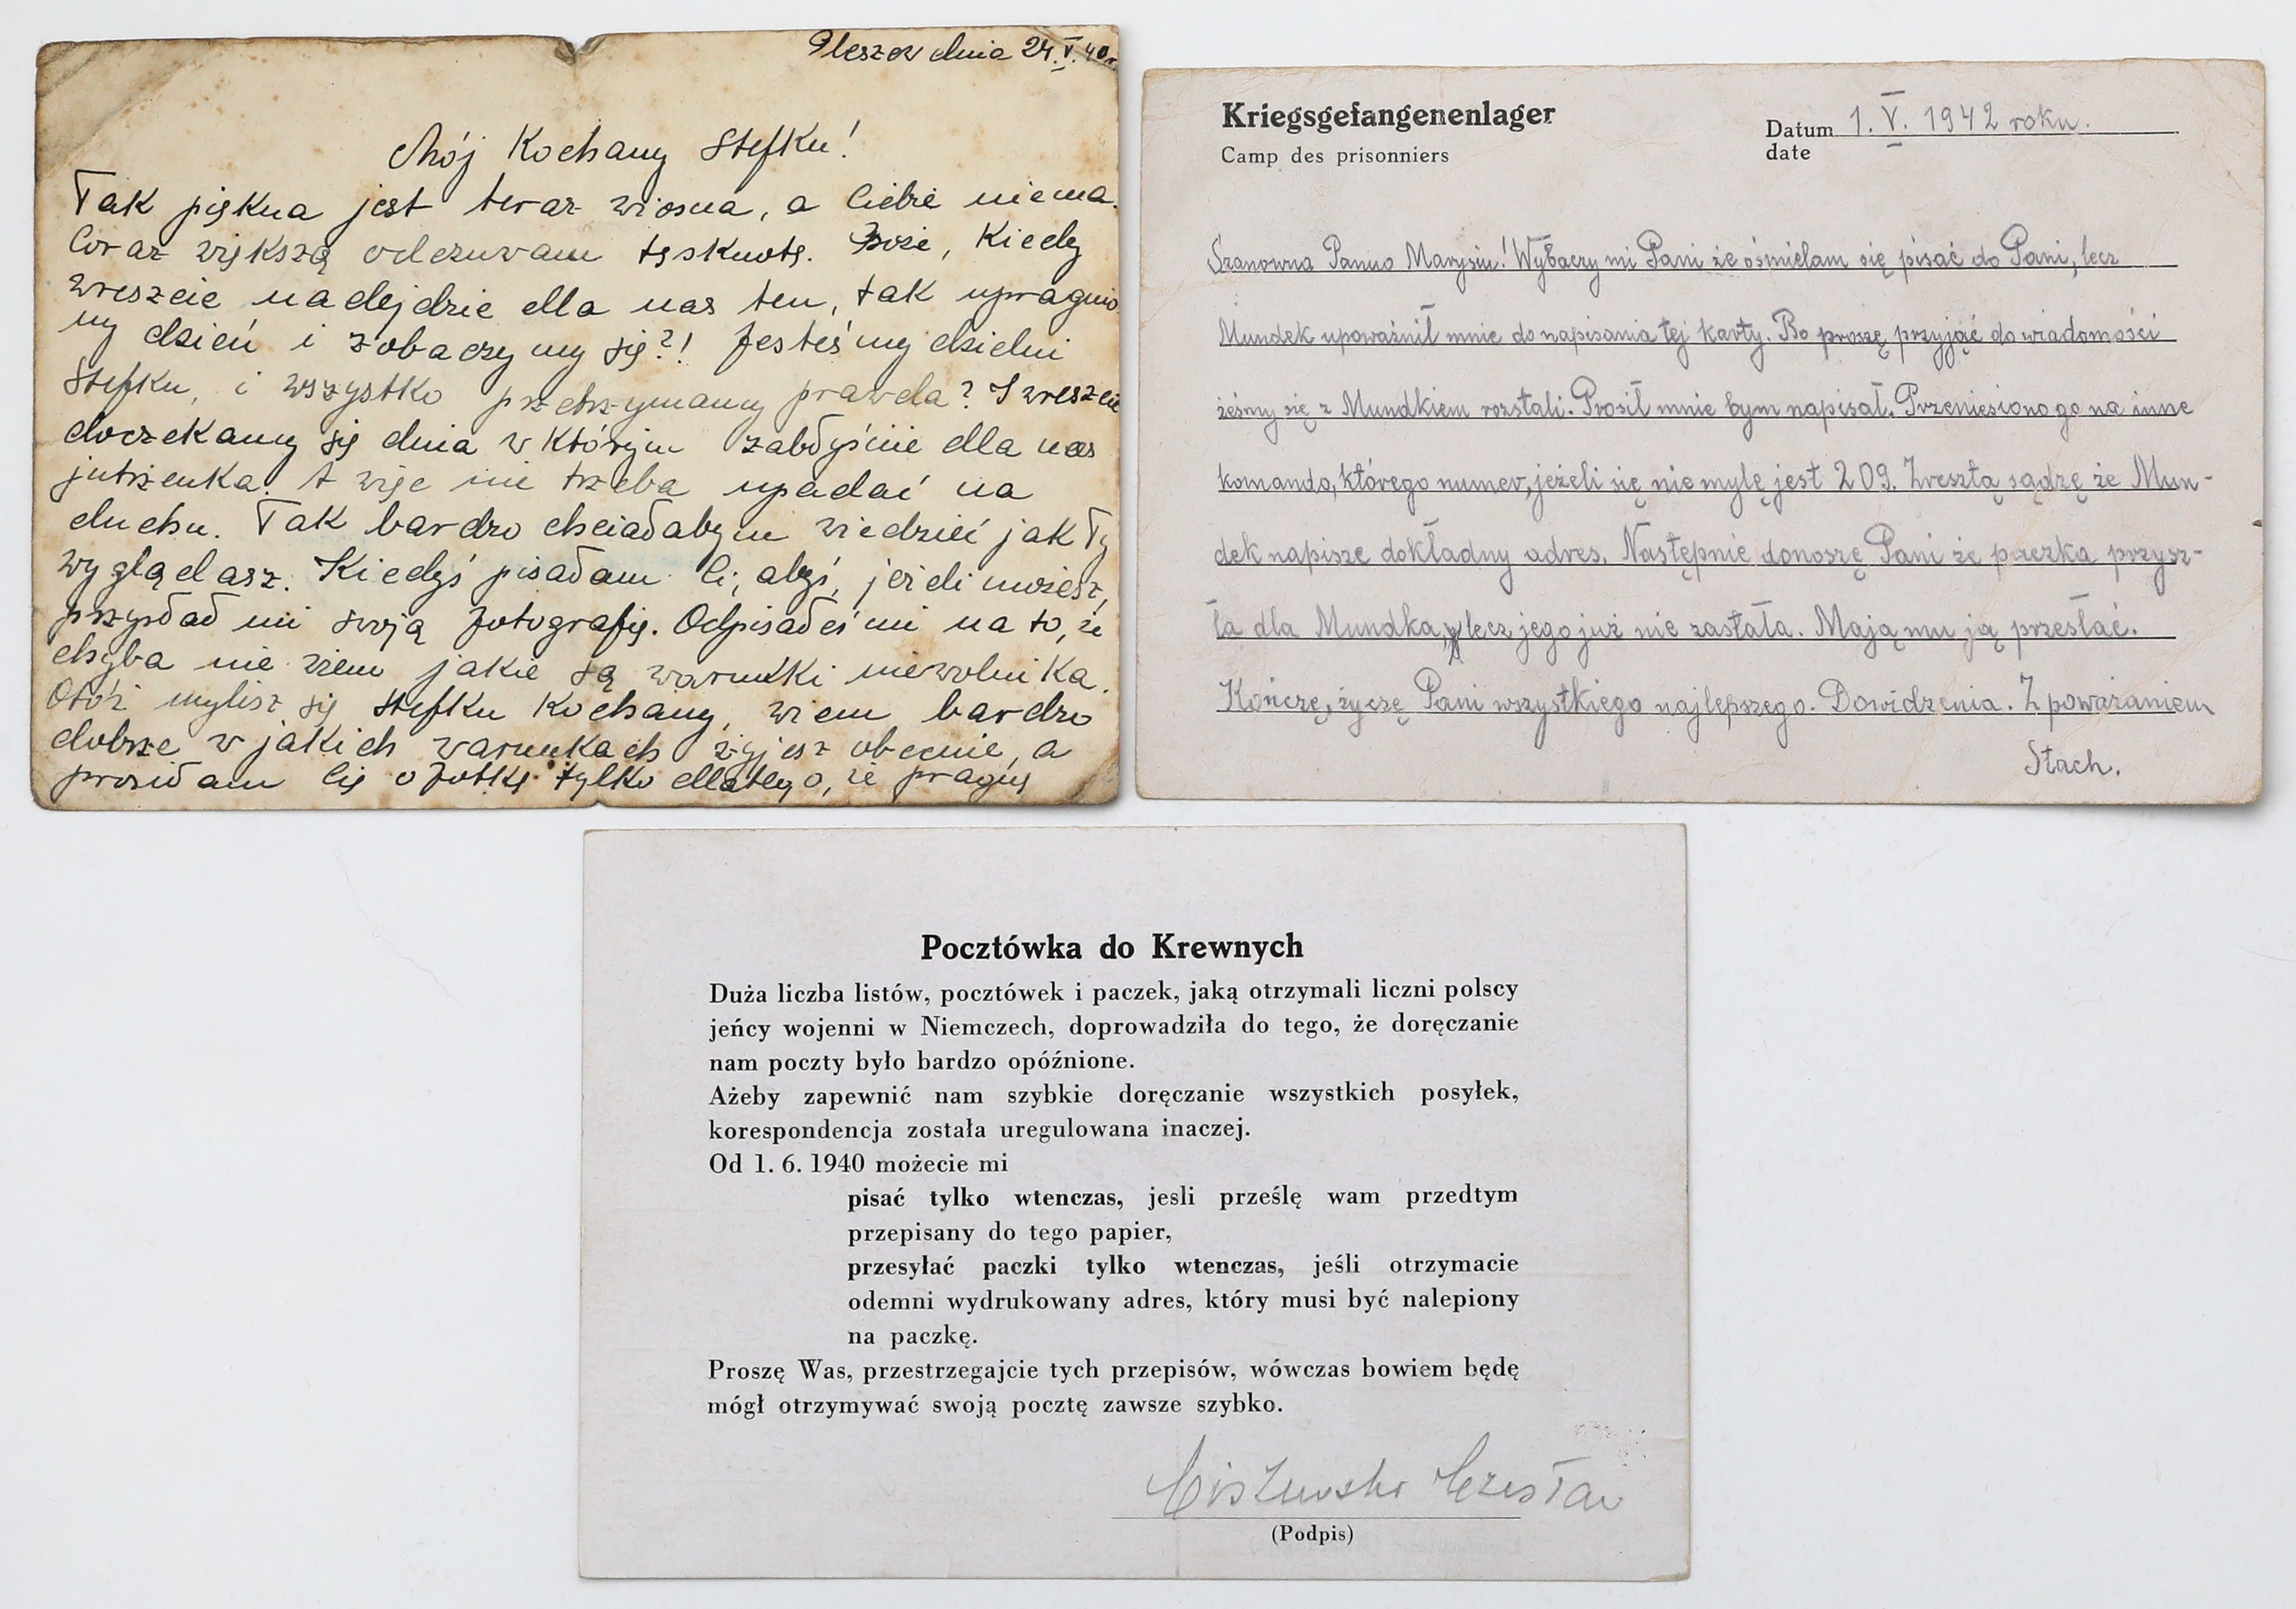 Pleszew dnia 24.V.40r.
Mój Kochany Stefku!
Tak piękna jest teraz wiosna, a Ciebie niema.
Coraz większą odczuwam tęsknotę. Boże, Kiedy
wreszcie nadejdzie dla nas ten, tak upragnio
ny dzień i zobaczymy się?! Jesteśmy dzielni
Stefku, i wszystko przetrzymamy prawda? I wreszcie
doczekamy się dnia w którym zabłyśnie dla nas
jutrzenka. A więc nie trzeba upadać na
duchu. Tak bardzo chciałabym wiedzieć jak Ty
wyglądasz. Kiedyś pisałam Ci, abyś, jeżeli możesz,
przysłał mi swoją fotografię. Odpisałeś mi na to, że
chyba nie wiem jakie są warunki niewolnika.
Otóż mylisz się Stefku Kochany, wiem bardzo
dobrze w jakich warunkach żyjesz obecnie, a
prosiłam Cię o fotkę tylko dlatego, że pragnę
Kriegsgefangenenlager
Camp des prisonniers
Datum 1. V. 1942 roku.
date
Szanowna Panno Marysiu! Wybaczy mi Pani że ośmielam się pisać do Pani, lecz
Mundek upoważnił mnie do napisania tej karty. Bo proszę przyjąć do wiadomości
żeśmy się z Mundkiem rozstali. Prosił mnie bym napisał. Przeniesiono go na inne
komando, którego numer, jeżeli się nie mylę jest 209. Zresztą sądzę że Mun-
dek napisze dokładny adres. Następnie donoszę Pani że paczka przysz-
ła dla Mundka, lecz jego już nie zastała. Mają mu ją przesłać.
Kończę, życzę Pani wszystkiego najlepszego. Dowidzenia. Z poważaniem
Stach.
Pocztówka do Krewnych
Duża liczba listów, pocztówek i paczek, jaką otrzymali liczni polscy
jeńcy wojenni w Niemczech, doprowadziła do tego, że doręczanie
nam poczty było bardzo opóźnione.
Ażeby zapewnić nam szybkie doręczanie wszystkich posyłek,
korespondencja została uregulowana inaczej.
Od 1. 6. 1940 możecie mi
pisać tylko wtenczas, jesli prześlę wam przedtym
przepisany do tego papier,
przesyłać paczki tylko wtenczas, jeśli otrzymacie
odemni wydrukowany adres, który musi być nalepiony
na paczkę.
Proszę Was, przestrzegajcie tych przepisów, wówczas bowiem będę
mógł otrzymywać swoją pocztę zawsze szybko.
Czesław
(Podpis)